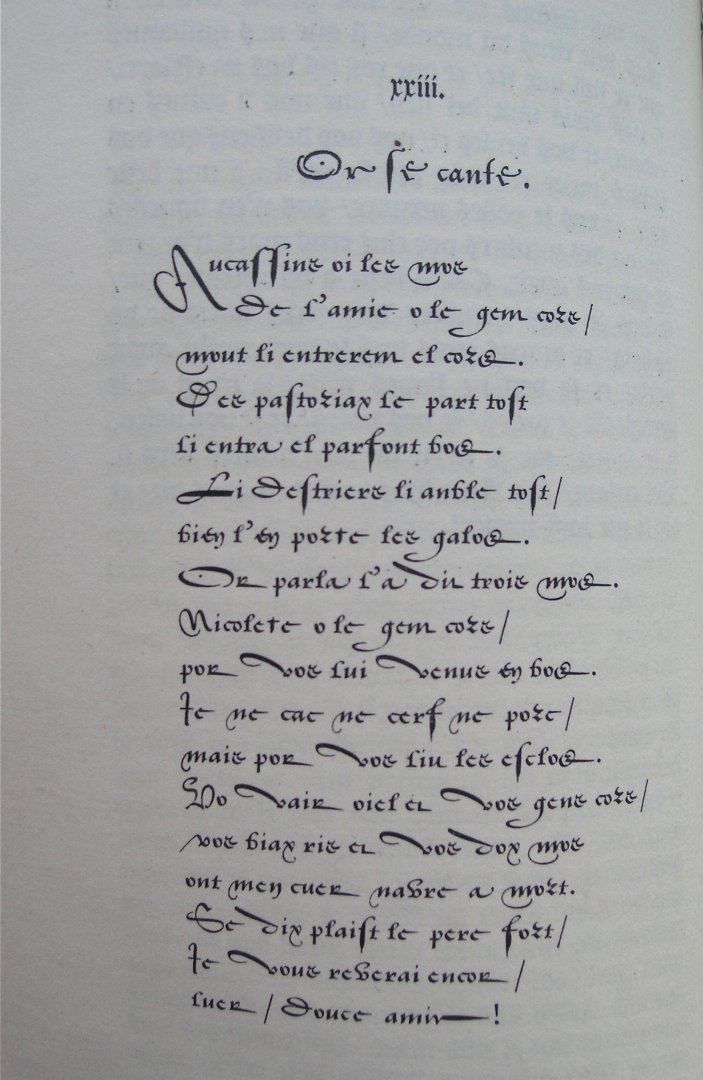 xxiii.
Or se cante.
Aucassins oi les mos
De s'amie o le gent cors/
mout li entrerent el cors.
Des pastoriax se part tost
si entra el parfont bos.
Li destriers li anble tost/
bien l'en porte les galos.
Or parla s'a dit trois mos.
Nicolete o le gent cors/
por vos sui venus en bos.
Je ne cac ne cerf ne porc/
mais por vos siu les esclos.
Vo vair oiel et vos gens cors/
vos biax ris et vos dox mos
ont men cuer navre a mort.
Se dix plaist le pere fort/
Je vous reverai encor/
suer/ douce amie!